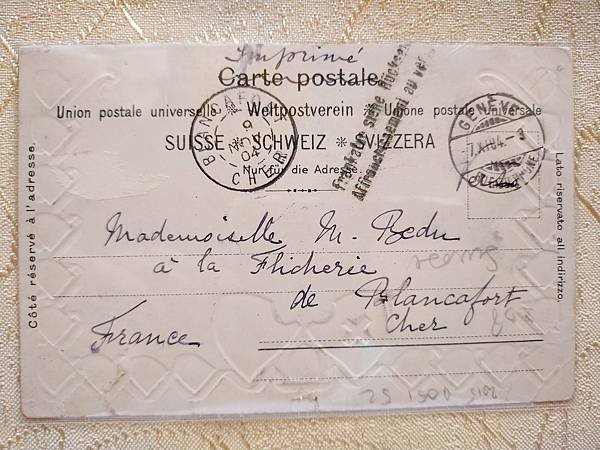 Imprimé
Carte postale.
Union postale universelle. * Weltpostverein * Unione postale universale
SUISSE * SCHWEIZ * SVIZZERA
Nur für die Adresse.
BLANCAFORT
9
NOV
04
CHER
Frankatur siehe Rückseite
Affranchissement au verso
GENÈVE
7.XI.04.-3
Côté réservé à l'adresse.
Lato riservato all'indirizzo.
Mademoiselle M. Bedu
à la Flicherie
de Blancafort
Cher
France